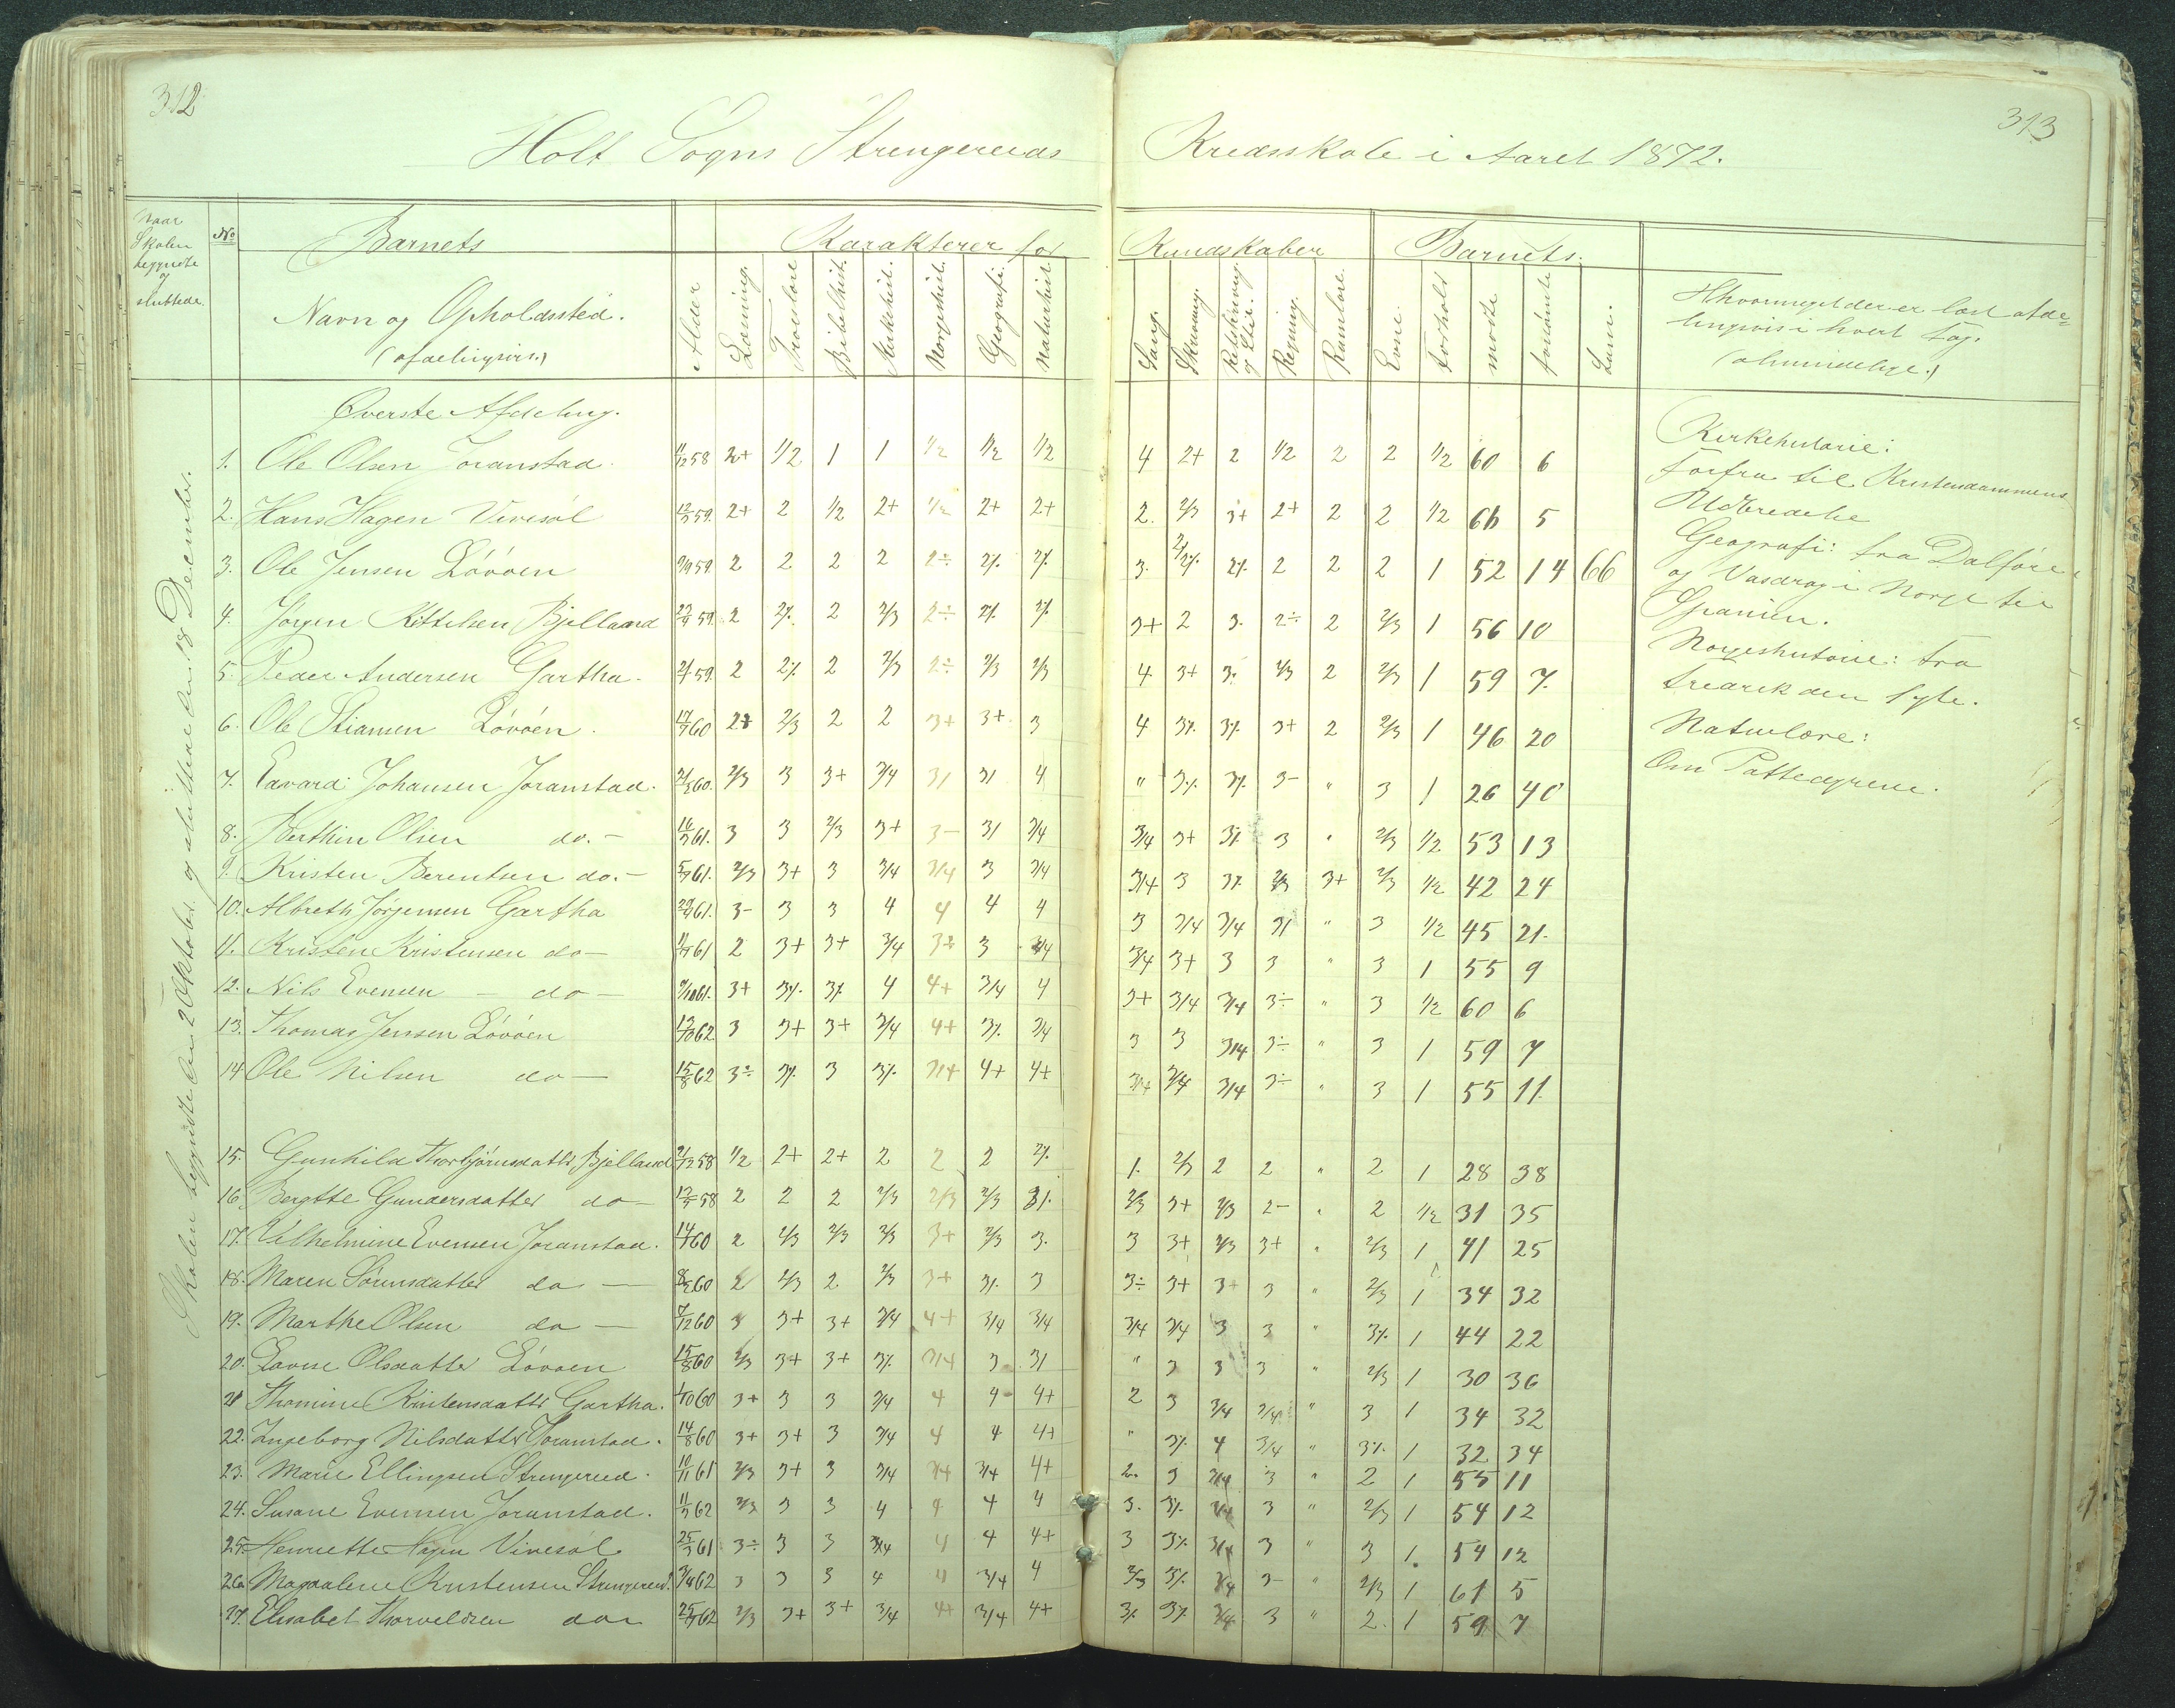 312
313
Holt Sogns Strengereids Kredsskole i Aaret 1872.
Naar Skolen begyndte og sluttede.
No
Barnets
Navn og Opholdssted.
(afdelingsvis.)
Alder
Karakterer for Kundskaber
Læsning.
Troeslære
Bibelhist.
Kirkehist.
Norgeshist.
Geografi.
Naturhist.
Sang.
Skrivning.
Retskrivning og Stil.
Regning.
Rumlære.
Barnets.
Evne.
Forhold
mødte
forsømte
Sum.
Hvormeget der er læst afde=
lingsvis i hvert Fag.
(almindelige.)
Skolen begyndte den 2 Oktober. og sluttede den 18 December.
Øverste Afdeling.
1. Ole Olsen Joranstad. 11/12 58 2+ 1/2 1 1 1/2 1/2 1/2 4 2+ 2 1/2 2 2 1/2 60 6
2. Hans Hagen Vivesøl 59. 2+ 2 1/2 2+ 1/2 2+ 2+ 2. 2/3 3+ 2+ 2 2 1/2 5
3. Ole Jensen Løvøen 59. 2 2 2 2 2÷ 3. 2 2 2 1 52 14 66
4. Jørgen Kittelsen Bjelland 59. 2 2 2/3 2÷ 3+ 2 3. 2÷ 2 2/3 1 56 10
5. Peder Andersen Gartha. 59. 2 2 2/3 2÷ 2/3 2/3 4 3+ 3. 2/3 2 2/3 1 59 7.
6. Ole Stiansen Løvøen. 17/7 60 2+ 2/3 2 2 3+ 3+ 3 4 3+ 2 2/3 1 46 20
7. Edvard Johansen Joranstad. 60. 2/3 3 3+ 3/4 4 " 3- " 3 1 26 40
8. Berthin Olsen do.- 61. 3 3 2/3 3+ 3- 3/4 3/4 3+ 3 " 2/3 1/2 53 13
9. Kristen Berentsen do.- 61. 2/3 3+ 3 3/4 3/4 3 3/4 3/4 3 2/3 3+ 2/3 1/2 42 24
10. Albreth Jørgensen Gartha 61. 3- 3 3 4 4 4 4 3 3/4 3/4 " 3 1/2 45 21.
11. Kristen Kristensen do- 61 2 3+ 3+ 3/4 3÷ 3 3/4 3/4 3+ 3 3 " 3 1 55 9
12. Nils Evensen - do- 61. 3+ 4 4+ 3/4 4 3+ 3/4 3/4 3÷ " 3 1/2 60 6
13. Thomas Jensen Løvøen 62 3 3+ 3+ 3/4 4+ 3/4 3 3 3/4 3÷ " 3 1 59 7
14 Ole Nilsen do- 15/8 62 3÷ 3 4+ 4+ 3/4 3/4 3÷ " 3 1 55 11.
15. Gunhild Thorbjørnsdatter Bjelland 58 1/2 2+ 2+ 2 2 2 1. 2/3 2 2 " 2 1 28 38
16 Bergtte Gundersdatter do- 58 2 2 2 2/3 2/3 2/3 2/3 3+ 2/3 2- " 2 1/2 31 35
17. Vilhelmine Evensen Joranstad. 60 2 2/3 2/3 2/3 3+ 2/3 3. 3 3+ 2/3 3+ " 2/3 1 41 25
18. Maren Sørensdatter do- 60 2 2/3 2 2/3 3+ 3 3÷ 3+ 3+ 3 " 2/3 1 34 32
19. Marthe Olsen do- 7/12 60 3+ 3+ 3/4 4+ 3/4 3/4 3/4 3/4 3 3 " 1 44 22
20. Lovise Olsdatter Løvøen 15/8 60 2/3 3+ 3+ 3/4 3 " 3 3 3 " 2/3 1 30 36
21 Thomine Kristensdatter Gartha. 60 3+ 3 3 3/4 4 4 4+ 2 3 3/4 3/4 " 3 1 34 32
22. Ingeborg Nilsdatter Joranstad. 14/8 60 3+ 3+ 3 3/4 4 4 4+ " 4 3/4 " 1 32 34
23. Marie Ellingsen Strengereid. 10/11 61 2/3 3+ 3 3/4 3/4 3/4 4+ 2. 3 3/4 3 " 2 1 55 11
24. Susane Evensen Joranstad. 62 2/3 3 3 4 4 4 4 3. 3/4 3 " 2/3 1 54 12
25. Henriette Hagen Vivesøl 61 3÷ 3 3 3/4 4 4 4+ 3 3/4 3 " 3 1. 54 12
26. Magdalene Kristensen Strengereid. 62 3 3 3 4 4 3/4 4 2/3 3/4 3- " 2/3 1 61 5
27. Elisabet Thorveldsen do 62 2/3 3+ 3+ 3/4 4+ 3/4 4+ 3/4 3 " 2. 1 59 7
Kirkehistorie:
Forfra til Kristendommens
Udbredelse
Geografi: fra Dalføre
og Vasdrag i Norge til
Spanien.
Norgeshistorie: fra
Fredrik den Syte.
Naturlære:
Om Pattedyrene.